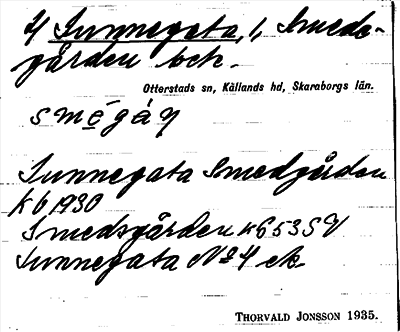 4 Sunnegata, 1, Smeds-
gården och.
Otterstads sn, Kållands hd, Skaraborgs län.
Sunnegata Smedgården
K 6 1930
Smedsgården K 6 53 SV
Sunnegata № 4 ek.
THORVALD JONSSON 1935.